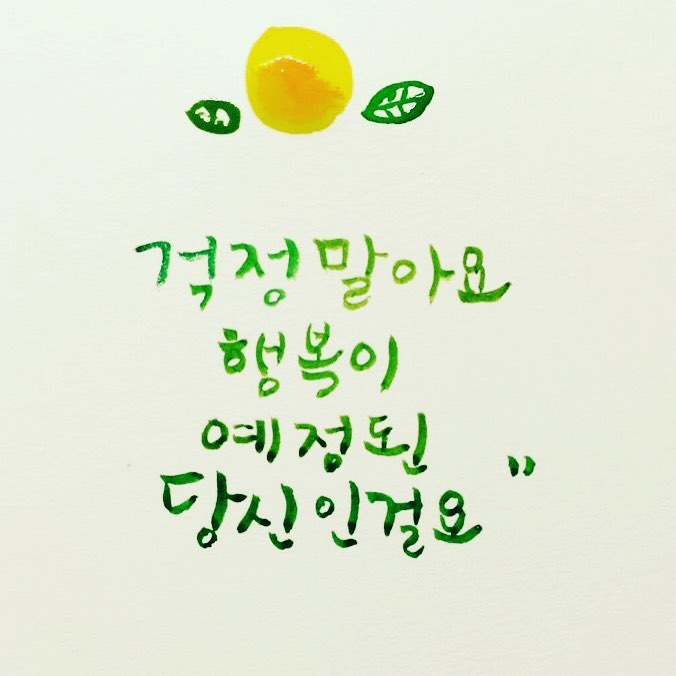 걱정말아요
행복이
예정된
당신인걸요"